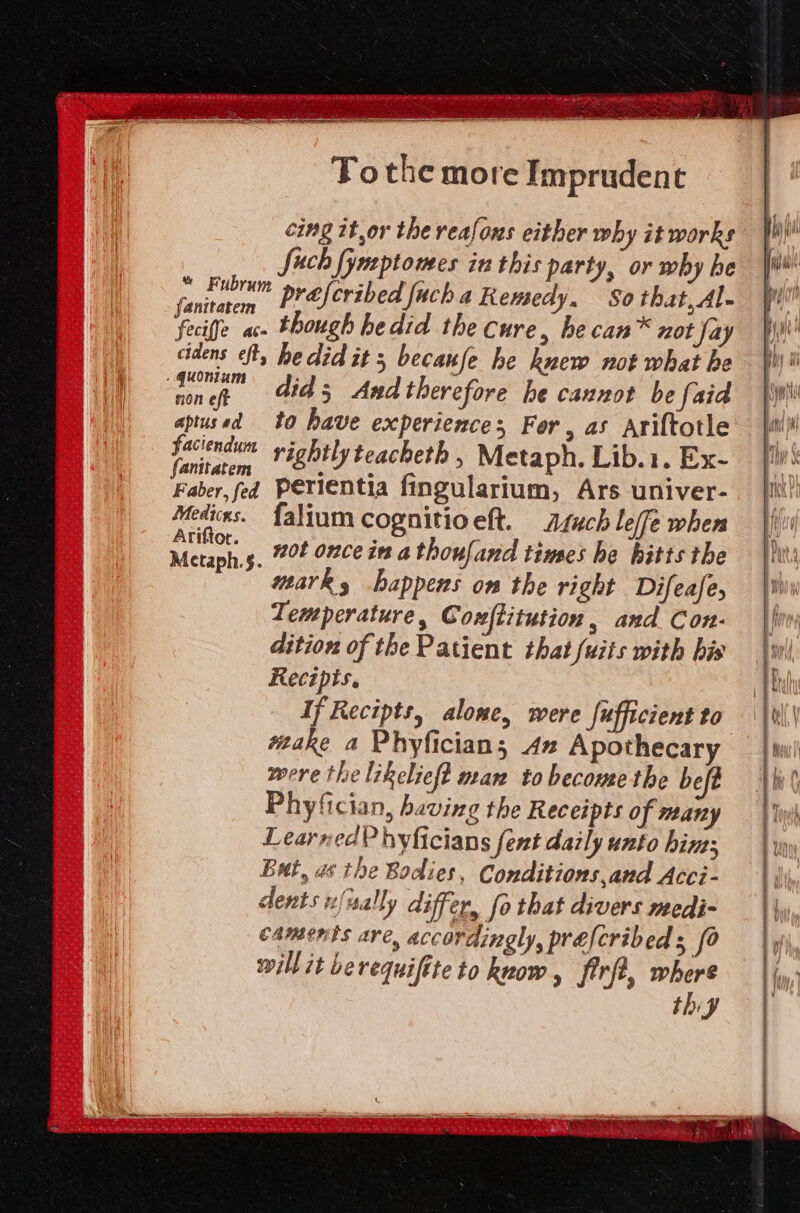 To the more Imprudent
cing it, or the reaſons either why it works
ſuch ſymptomes in this party, or why he
præſcribed ſuch a Remedy. So that, Al-
though he did the Cure, he can* not ſay
he did it; becauſe he knew not what he
did; And therefore he cannot be ſaid
to have experience; For, as Ariſtotle
rightly teacheth, Metaph. Lib. 1. Ex-
perientia ſingularium, Ars univer-
ſalium cognitio eſt. Much leſſe when
not once in a thouſand times he hitts the
mark, happens on the right Diſeaſe,
Temperature, Conſtitution, and Con-
dition of the Patient that ſuits with his
Recipts.
If Recipts, alone, were ſufficient to
make a Phyſician; An Apothecary
were the likelieſt man to become the beſt
Phyſician, having the Receipts of many
Learned Phyſicians ſent daily unto him;
But, as the Bodies, Conditions, and Acci-
dents uſually differ, ſo that divers medi-
caments are, accordingly, præſcribed; ſo
will it be requiſite to know, firſt, where
thy
* Fubrum
ſanitatem
feciſſe ac-
cidens eſt,
quonium
non eſt
aptus ad
faciendum
ſanitatem
Faber, ſed
Medicus.
Ariſtot.
Metaph. 5.